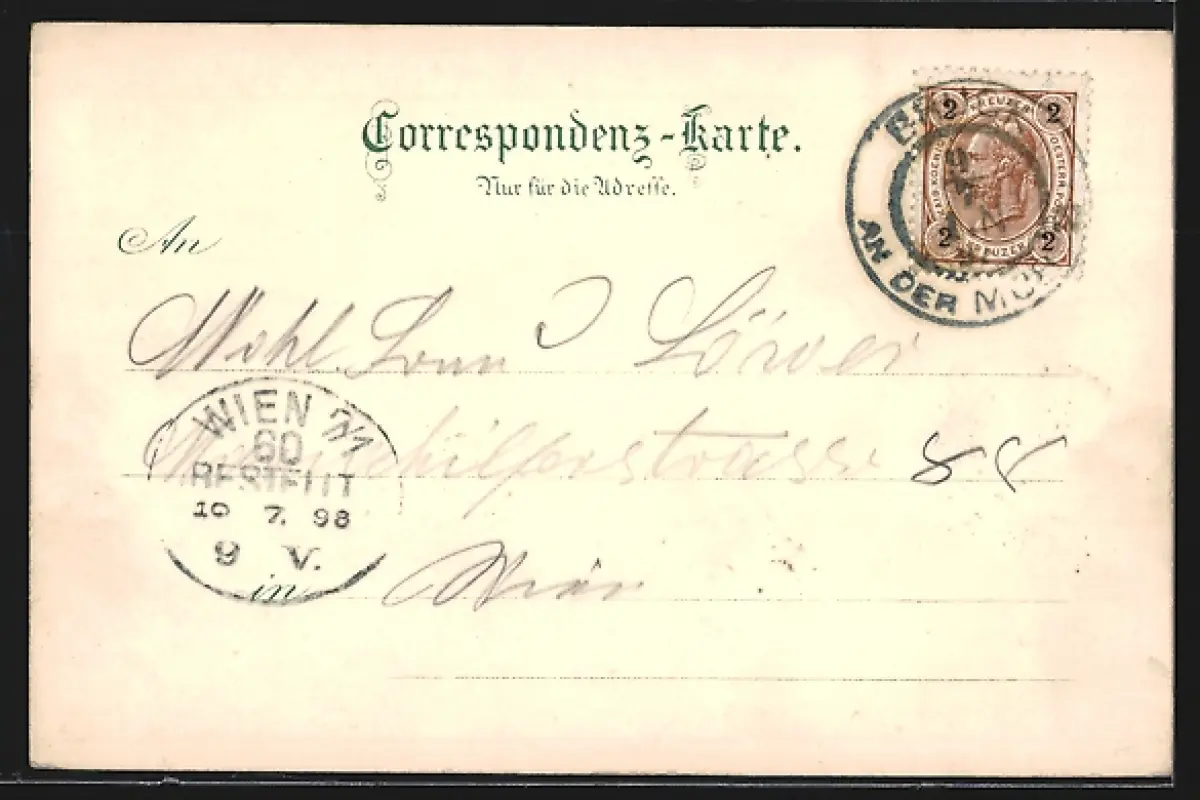 Correspondenz-Karte.
Nur für die Adresse.
2 KREUZER 2
2 2
AN DER MUR
An
Wohl
WIEN 7/1
60
BESTELLT
10 7. 98
9 V.
Mariahilferstrasse 88
in Wien